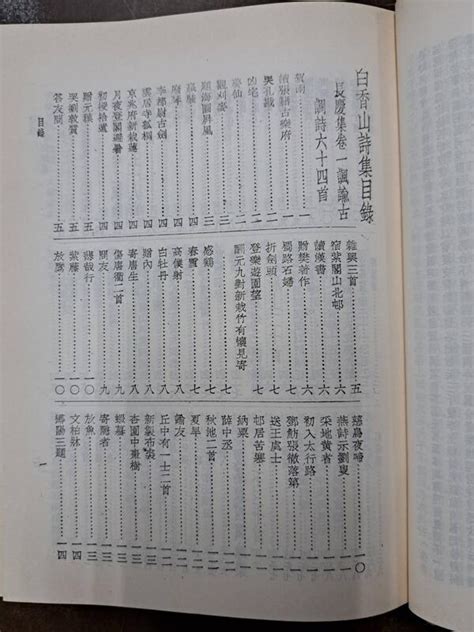 白香山詩集目錄
長慶集卷一 諷諭古
調詩六十四首
賀雨…………一
讀張籍古樂府…………一
哭孔戡…………一
凶宅…………二
夢仙…………二
觀刈麥…………三
題海圖屏風…………三
李都尉古劍…………四
雲居寺孤桐…………四
京兆府新栽蓮…………四
月夜登閣避暑…………四
初授拾遺…………四
贈元稹…………五
哭劉敦質…………五
答友問…………五
雜興三首…………五
宿紫閣山北邨…………六
讀漢書…………六
贈樊著作…………六
蜀路石婦…………七
折劍頭…………七
登樂遊園望…………七
酬元九對新栽竹有懷見寄…………七
感鶴…………七
春雪…………八
高僕射…………八
白牡丹…………八
贈內…………八
寄唐生…………八
傷唐衢二首…………九
問友…………九
悲哉行…………一〇
紫藤…………一〇
放鷹…………一〇
慈烏夜啼…………一〇
燕詩示劉叟…………一一
采地黃者…………一一
初入太行路…………一一
鄧魴張徹落第…………一一
送王處士…………一一
邨居苦寒…………一一
納粟…………一二
薛中丞…………一二
秋池二首…………一二
夏旱…………一二
諭友…………一二
丘中有一士二首…………一二
新製布裘…………一三
杏園中棗樹…………一三
蝦蟇…………一三
寄隱者…………一三
放魚…………一三
文柏牀…………一四
潯陽三題…………一四
目錄
一